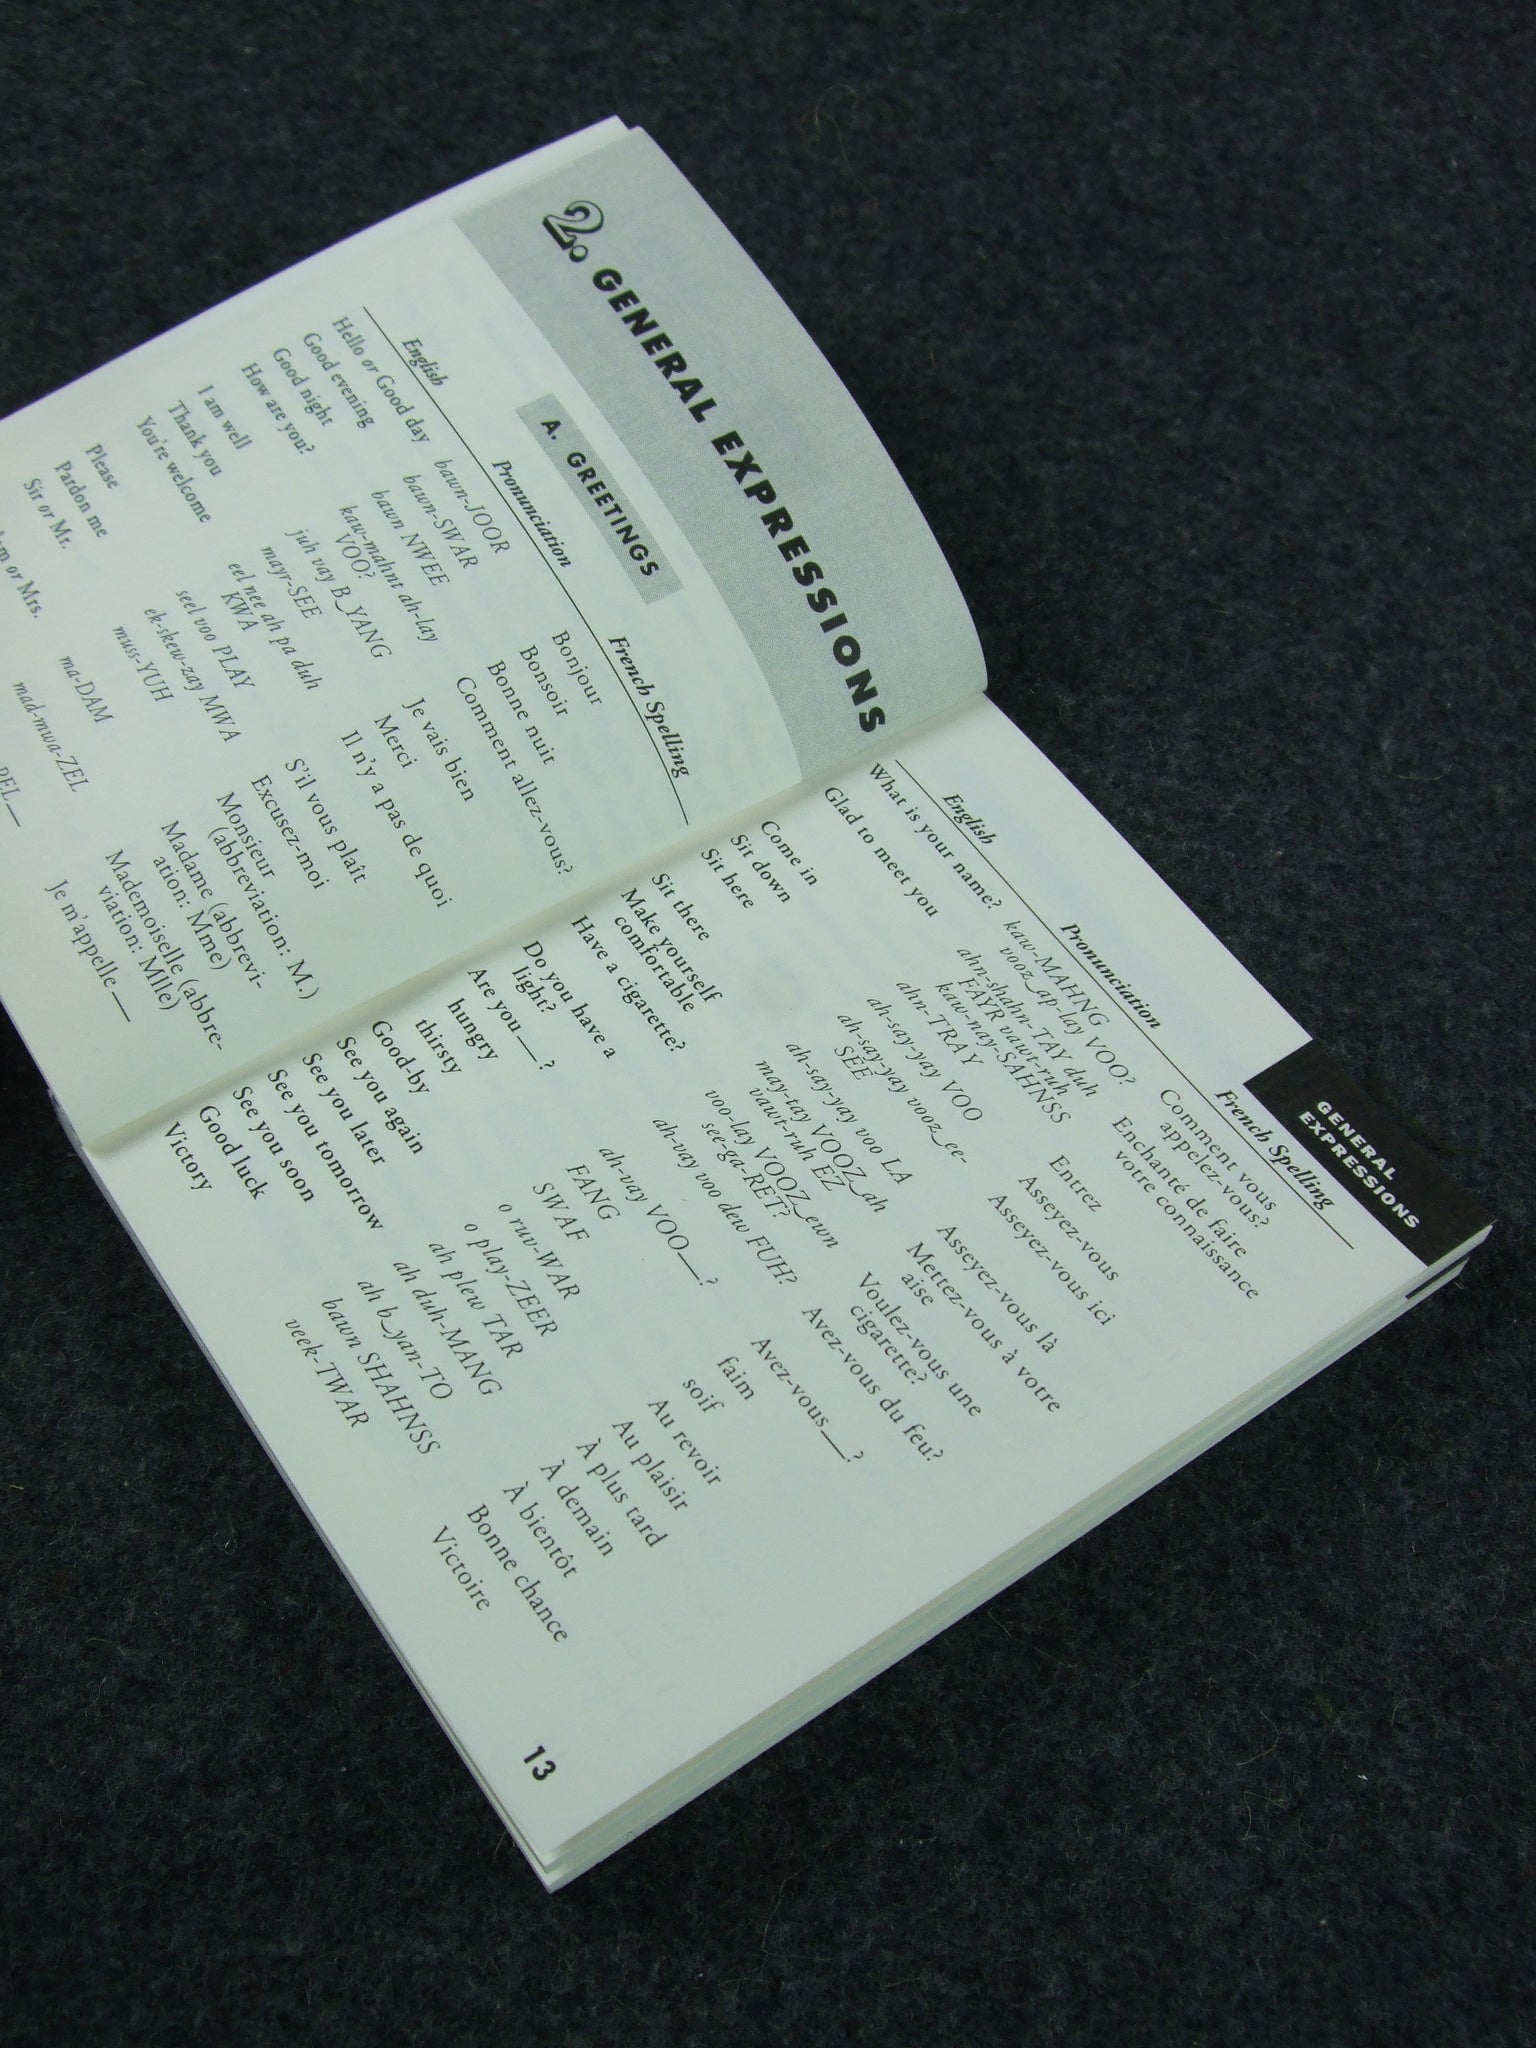 2. GENERAL EXPRESSIONS
A. GREETINGS
English Pronunciation French Spelling
Hello or Good day bawn-JOOR Bonjour
Good evening bawn-SWAR Bonsoir
Good night bawn NWEE Bonne nuit
How are you? kaw-mahnt ah-lay Comment allez-vous?
VOO?
I am well juh vay B_YANG Je vais bien
Thank you mayr-SEE Merci
You're welcome eel nee ah pa duh Il n'y a pas de quoi
KWA
Please seel voo PLAY S'il vous plaît
Pardon me ek-skew-zay MWA Excusez-moi
Sir or Mr. muss-YUH Monsieur
(abbreviation: M.)
or Mrs. ma-DAM Madame (abbrevi-
ation: Mme)
mad-mwa-ZEL Mademoiselle (abbre-
viation: Mlle)
Je m'appelle __
GENERAL
EXPRESSIONS
English Pronunciation French Spelling
What is your name? kaw-MAHNG Comment vous
vooz_ap-lay VOO? appelez-vous?
Glad to meet you ahn-shahn-TAY duh Enchanté de faire
FAYR vawt-ruh votre connaissance
kaw-nay-SAHNSS
Come in ahn-TRAY Entrez
Sit down ah-say-yay VOO Asseyez-vous
Sit here ah-say-yay vooz_ee- Asseyez-vous ici
SEE
Sit there ah-say-yay voo LA Asseyez-vous là
Make yourself may-tay VOOZ_ah Mettez-vous à votre
comfortable vawt-ruh EZ aise
Have a cigarette? voo-lay VOOZ_ewn Voulez-vous une
see-ga-RET? cigarette?
Do you have a ah-vay voo dew FUH? Avez-vous du feu?
light?
Are you __? ah-vay VOO__? Avez-vous __?
hungry FANG faim
thirsty SWAF soif
Good-by o ruv-WAR Au revoir
See you again o play-ZEER Au plaisir
See you later ah plew TAR À plus tard
See you tomorrow ah duh-MANG À demain
See you soon ah b_yan-TO À bientôt
Good luck bawn SHAHNSS Bonne chance
Victory veek-TWAR Victoire
13